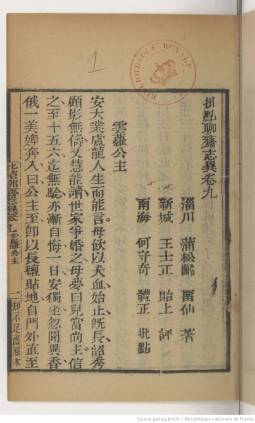 批點聊齋志異卷九
淄川　蒲松齡　畱仙　著
新城　王士正　貽上　評
南海　何守奇　體正　批點
雲蘿公主
安大業盧龍人生而能言母飲以犬血始止旣長韶秀
顧影無儔又慧能讀世家爭婚之母夢曰兒當尚主信
之至十五六迄無驗亦漸自悔一日安獨坐忽聞異香
俄一美婢奔入曰公主至即以長氈貼地自門外直至
1
Source gallica.bnf.fr / Bibliothèque nationale de France